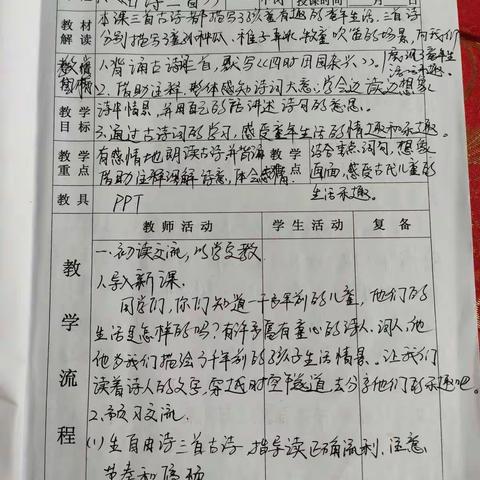 《古诗三首》
授课时间 月 日
教材解读
本课三首古诗都描写了孩童有趣的童年生活。三首诗
分别描写了童孙种瓜、稚子弄冰、牧童吹笛的场景,向我们
展词了童年生
活的乐趣。
教学目标
1.背诵古诗三首,默写《四时田园杂兴》。
2.借助注释,整体感知诗词大意,学会边读边想象
诗中情景,并用自己的话讲述诗句的意思。
3.通过古诗词的学习,感受童年生活的情趣和乐趣。
教学重点
有感情地朗读古诗并背诵
借助注释理解诗意,体会
教学
点
结合重点词句,想象
画面,感受古代儿童的
生活乐趣。
教具
PPT
教学流程
教师活动
学生活动
复备
一.初读交流,以学定教
1.导入新课.
同学们,你们知道一千多年前的儿童,他们的
生活是怎样的吗?有许多富有童心的诗人、词人,他
们为我们描绘了千年前的孩子生活情景。让我们
读着诗人的文字,穿越时空隧道去分享他们的乐趣吧。
2.预习交流.
(1)生自由读三首古诗,指导读正确流利,注意
节奏和停顿